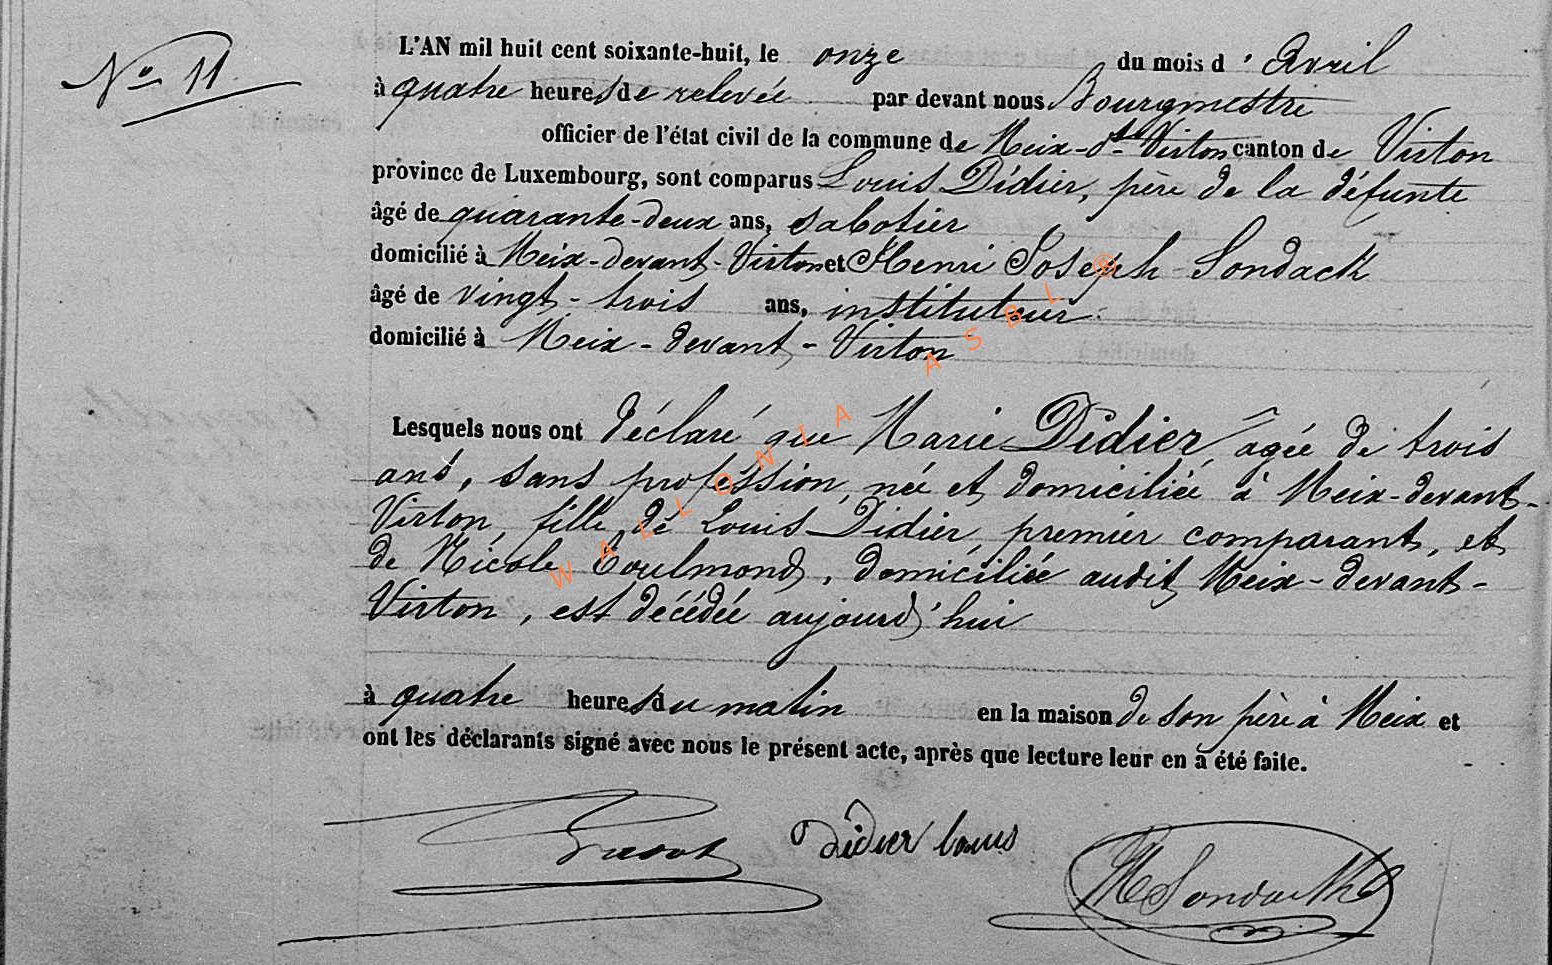 No 11.
L'AN mil huit cent soixante-huit, le onze du mois d'Avril
à quatre heures de relevée par devant nous Bourgmestre
officier de l'état civil de la commune de Meix-dt-Virton canton de Virton
province de Luxembourg, sont comparus Louis Didier, père de la défunte
âgé de quarante-deux ans, sabotier
domicilié à Meix-devant-Virton et Henri Joseph Sondack
âgé de vingt-trois ans, instituteur
domicilié à Meix-devant-Virton
Lesquels nous ont déclaré que Marie Didier, agée de trois
ans, sans profession, née et domiciliée à Meix-devant-
Virton fille de Louis Didier premier comparant, et
de Nicole Goulmond, domiciliée audit Meix-devant-
Virton, est décédée aujourd'hui
à quatre heures du matin en la maison de son père à Meix et
ont les déclarants signé avec nous le présent acte, après que lecture leur en a été faite.
didier louis
HSondack
WALLONIA ASBL ®